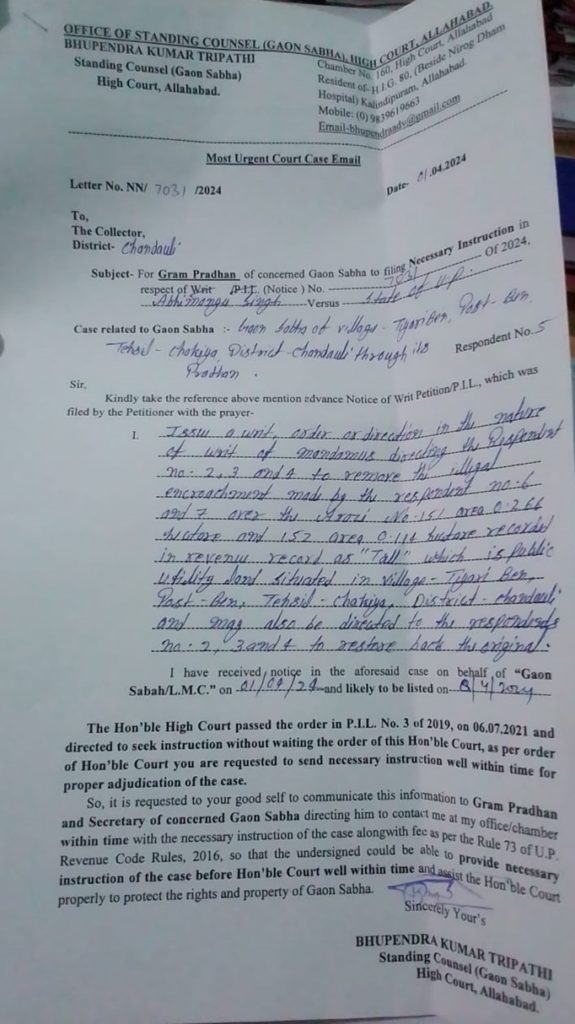 OFFICE OF STANDING COUNSEL (GAON SABHA), HIGH COURT, ALLAHABAD.
BHUPENDRA KUMAR TRIPATHI
Standing Counsel (Gaon Sabha)
High Court, Allahabad.
Chamber No. 160, High Court, Allahabad
Resident of- H.I.G. 80, (Beside Nirog Dham
Hospital) Kalindipuram, Allahabad.
Mobile: (0) 9839619663
Email-bhupendraadv@gmail.com
Most Urgent Court Case Email
Letter No. NN/ 7031 /2024
Date- 01.04.2024
To,
The Collector,
District- Chandauli
Subject- For Gram Pradhan of concerned Gaon Sabha to filing Necessary Instruction in
respect of Writ /P.I.L. (Notice) No. 7031 Of 2024,
Abhimanyu Singh Versus State of U.P.
Case related to Gaon Sabha :- Gaon Sabha of village- Tiyari Ben, Post- Ben,
Tehsil- Chakiya, District- Chandauli through its Respondent No. 5
Pradhan.
Sir,
Kindly take the reference above mention advance Notice of Writ Petition/P.I.L., which was
filed by the Petitioner with the prayer-
I. Issue a writ, order or direction in the nature
of writ of mandamus directing the Respondent
no. 2, 3 and 4 to remove the illegal
encroachment made by the respondent no. 6
and 7 over the Arazi No. 151 area 0.266
hectare and 152 area 0.114 hectare recorded
in revenue record as "Tall" which is public
utility land situated in village- Tiyari Ben,
Post- Ben, Tehsil- Chakiya, District- Chandauli
and may also be directed to the respondents
no. 2, 3 and 4 to restore back the original.
I have received notice in the aforesaid case on behalf of "Gaon
Sabah/L.M.C." on 01/04/24 and likely to be listed on 8/4/2024
The Hon'ble High Court passed the order in P.I.L. No. 3 of 2019, on 06.07.2021 and
directed to seek instruction without waiting the order of this Hon'ble Court, as per order
of Hon'ble Court you are requested to send necessary instruction well within time for
proper adjudication of the case.
So, it is requested to your good self to communicate this information to Gram Pradhan
and Secretary of concerned Gaon Sabha directing him to contact me at my office/chamber
within time with the necessary instruction of the case alongwith fee as per the Rule 73 of U.P.
Revenue Code Rules, 2016, so that the undersigned could be able to provide necessary
instruction of the case before Hon'ble Court well within time and assist the Hon'ble Court
properly to protect the rights and property of Gaon Sabha.
Sincerely Your's
BHUPENDRA KUMAR TRIPATHI
Standing Counsel (Gaon Sabha)
High Court, Allahabad.